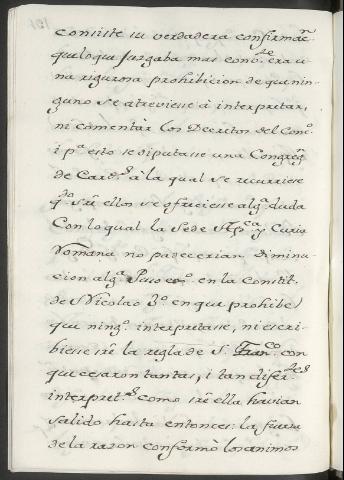 consiste su verdadera confirmac.ⁿ
que lo qu Jusgaba mas conv.te era u
na rigurosa prohibicion de que nin
guno se atreviesse à interpretar,
ni comentàr los Decretos del Conc.o
i p.a esto se diputasse una Congreg.n
de Card.s à la qual se recurriese
q.do sre ellos se ofreciesse alg.a duda
Con lo qual la Sede Ap.ca y Curia
Romana no padecerian diminu
cion alg.a Puso en la Constit.
de Nicolao 3.o en que prohibe
que ning.o interpretasse, ni escri
biesse sre la regla de S. Fran.co con
que cesaron tantas, i tan difer.tes
interpret.s como sre ella havian
salido hasta entonces: la fuerza
de la razon conformò los animos